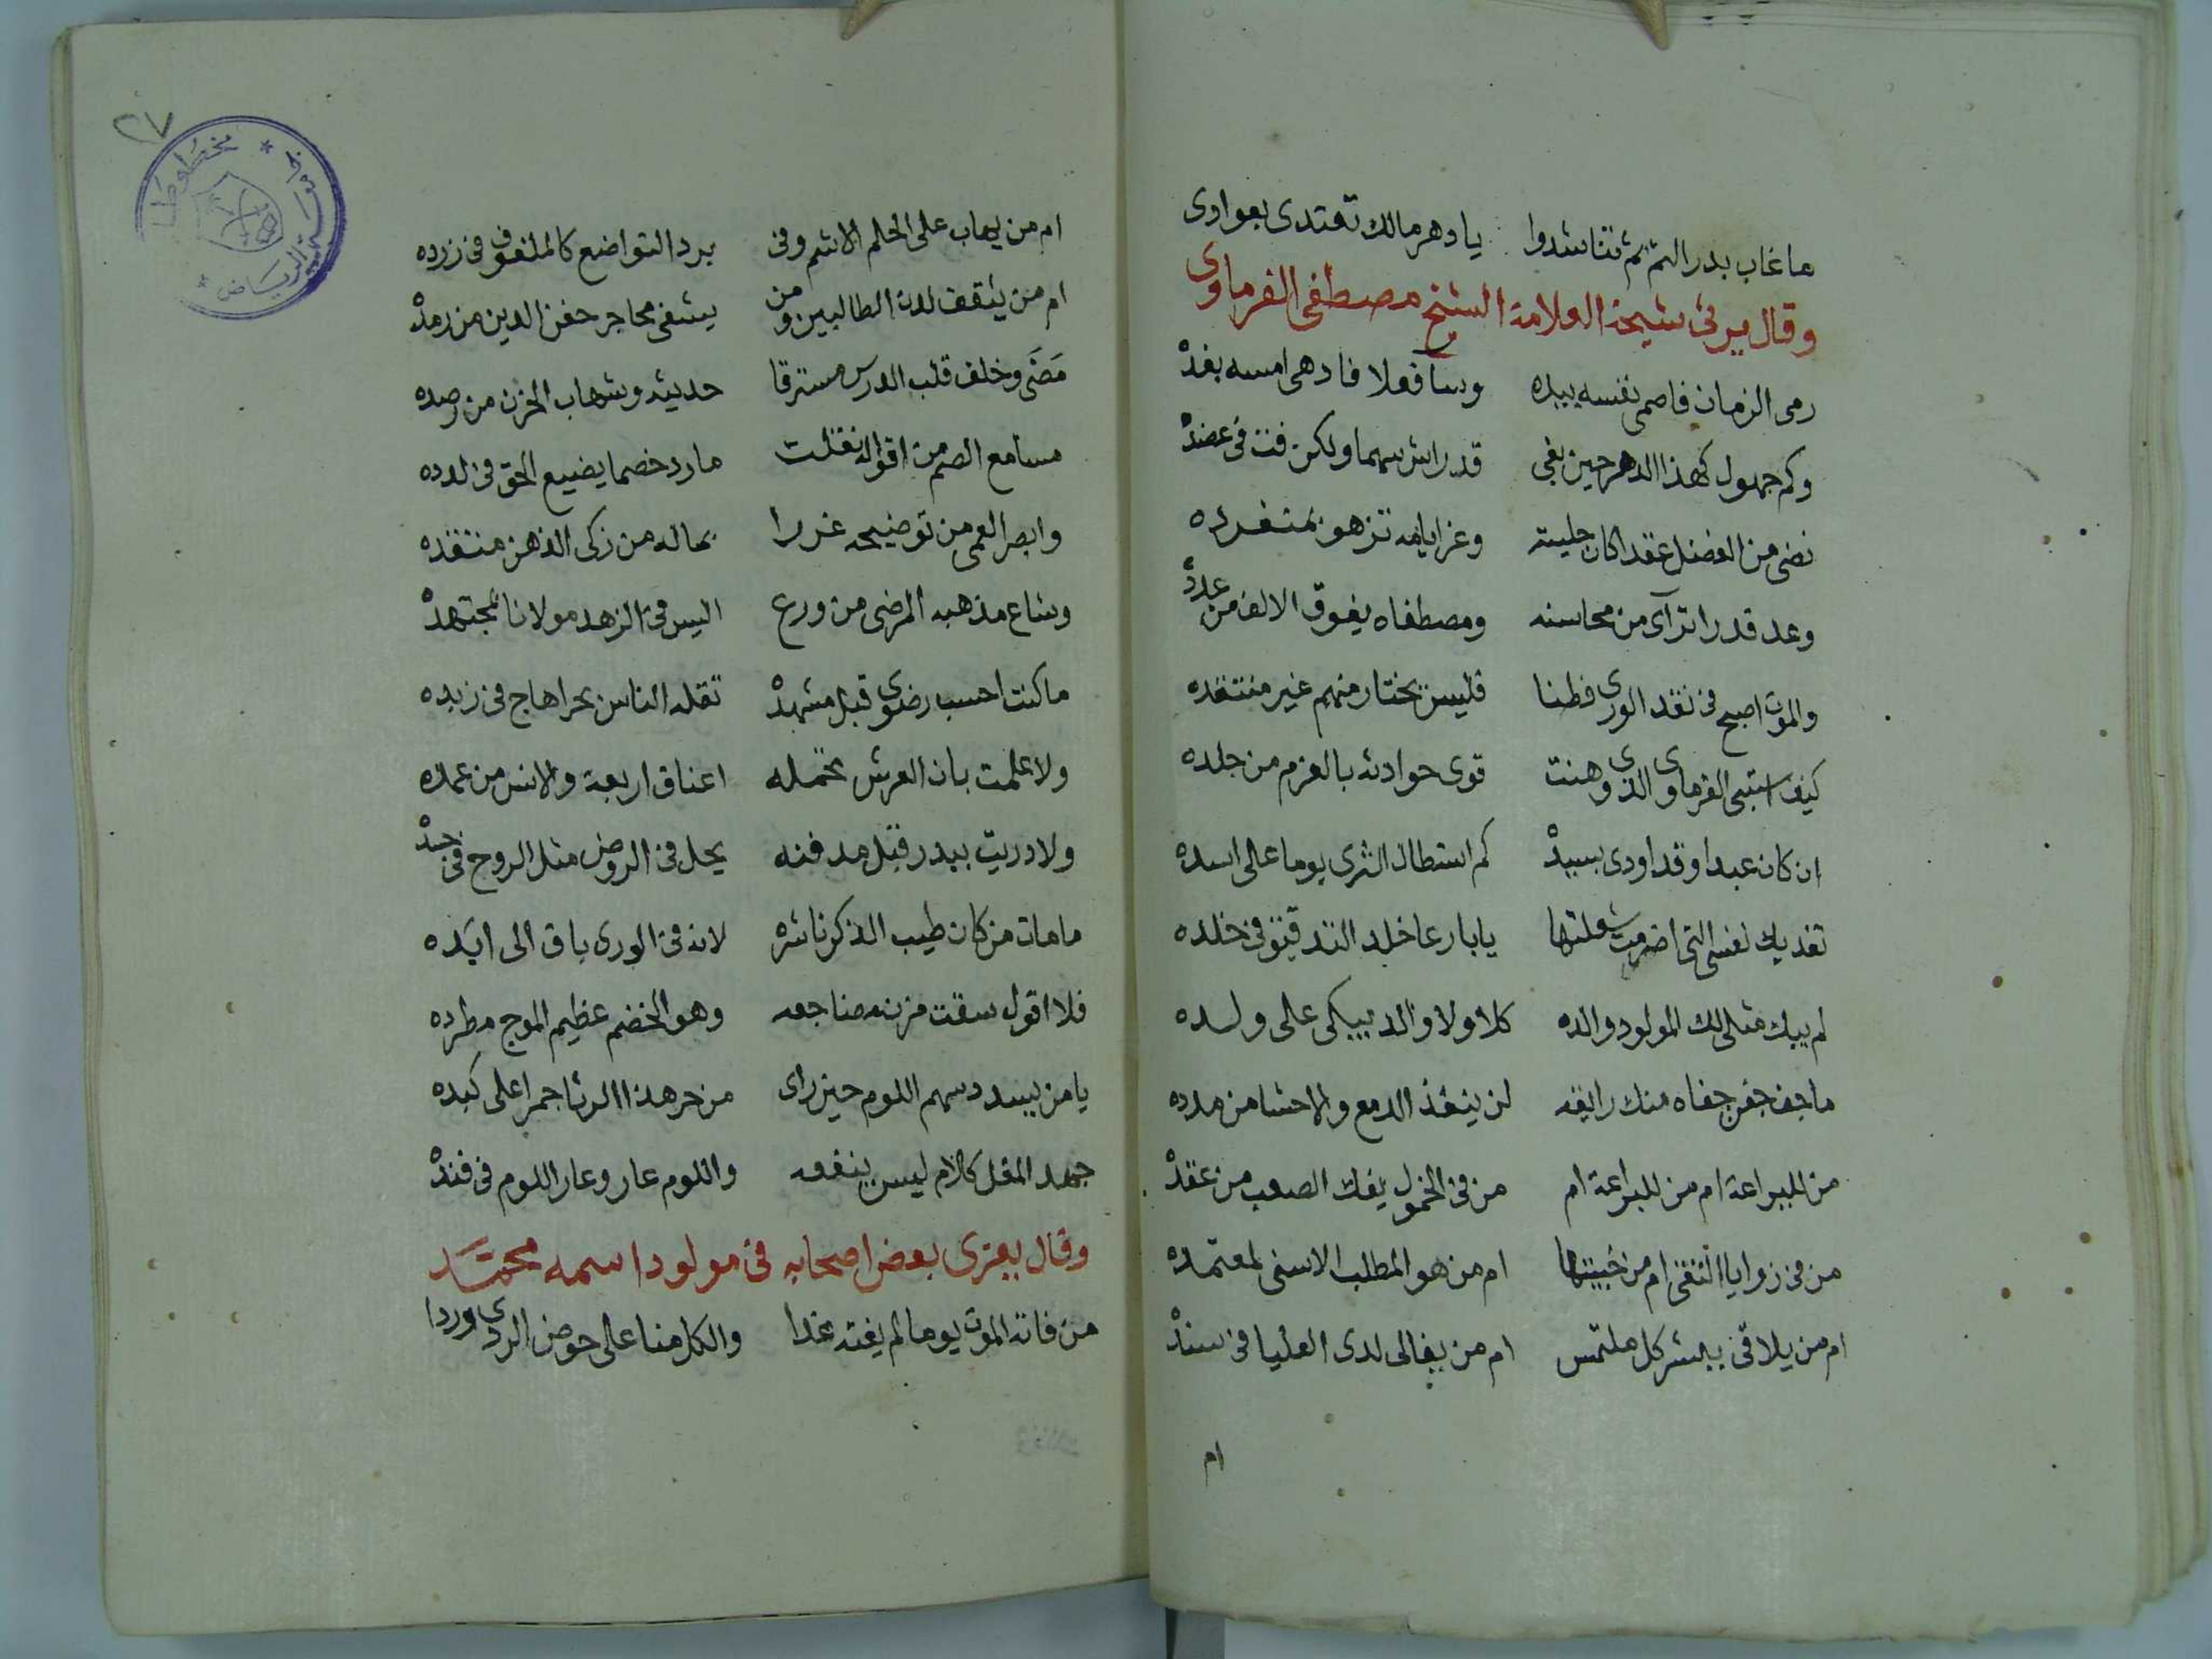 ما غاب بدر التم ثم تناشدوا يا دهر مالك تعتدى بعوادى
وقال يرثى شيخه العلامة الشيخ مصطفى الفرماوى
رمى الزمان فاصمى نفسه بيده وسآ فعلا فادهى امسه بغده
وكم جهول كهذا الدهر حين بغى قد راش سهما ولكن فت فى عضده
نضى من الفضل عقدا كان حليته وغر ايامه تزهو بمنفرده
وعد قدرا ترآى من محاسنه ومصطفاه يفوق الالف من عدده
والموت اصبح فى نقد الورى فطنا فليس يختار منهم غير منتقده
كيف استبى الفرماوى الذى وهنت قوى حوادثه بالعزم من جلده
ان كان عبدا وقد اودى بسيده كم استطال الثرى يوما على اسده
تفديك نفسى التى اضرمت شعلتها يا بارعا خلد التدقيق فى خلده
لم يبك مثلى لك المولود والده كلا ولا والد يبكى على ولده
ما جف جفن جفاه منك رايقه لن ينفذ الدمع والاحشا من مدده
من لليراعة ام من للبراعة ام من فى الخمول يفك الصعب من عقده
من فى زوايا التقى ام من خبيتها ام من هو المطلب الاسنى لمعتمده
ام من يلاقى ببشر كل ملتمس ام من يغالى لدى العليا فى سنده
ام
٢٧
مخطوطات
الرياض
ام من يهاب على الحلم الاشم وفى برد التواضع كالملفوف فى زرده
ام من يثقف لدن الطالبين ومن يشفى محاجر جفن الدين من رمده
مَضَى وخلف قلب الدرس مسترقا حديثه وشهاب الحزن من رصده
مسامع الصم من اقواله نقلت ما رد خصما يضيع الحق فى لدده
وابصر العمى من توضيحه غررا بها له من زكى الذهن منتقده
وشاع مذهبه المرضى من ورع اليس فى الزهد مولانا بمجتهده
ما كنت احسب رضوى قبل مشهده تقله الناس بحرا هاج فى زبده
ولا علمت بان العرش تحمله اعناق اربعة والانس من عمده
ولا دريت ببدر قبل مدفنه يحل فى الروض مثل الروح فى جسده
ما مات من كان طيب الذكر ناشره لانه فى الورى باق الى ابَده
فلا اقول سقت مزنه مضاجعه وهو الخضم عظيم الموج مطرده
يا من يسدد سهم اللوم حين راى من حر هذا الرثا جمرا على كبده
جهد المقل كلام ليس ينفعه واللوم عار وعار اللوم فى فنده
وقال يعزى بعض اصحابه فى مولود اسمه محمَّد
من فاته الموت يوما لم يفته غدا والكل منا على حوض الردى وردا